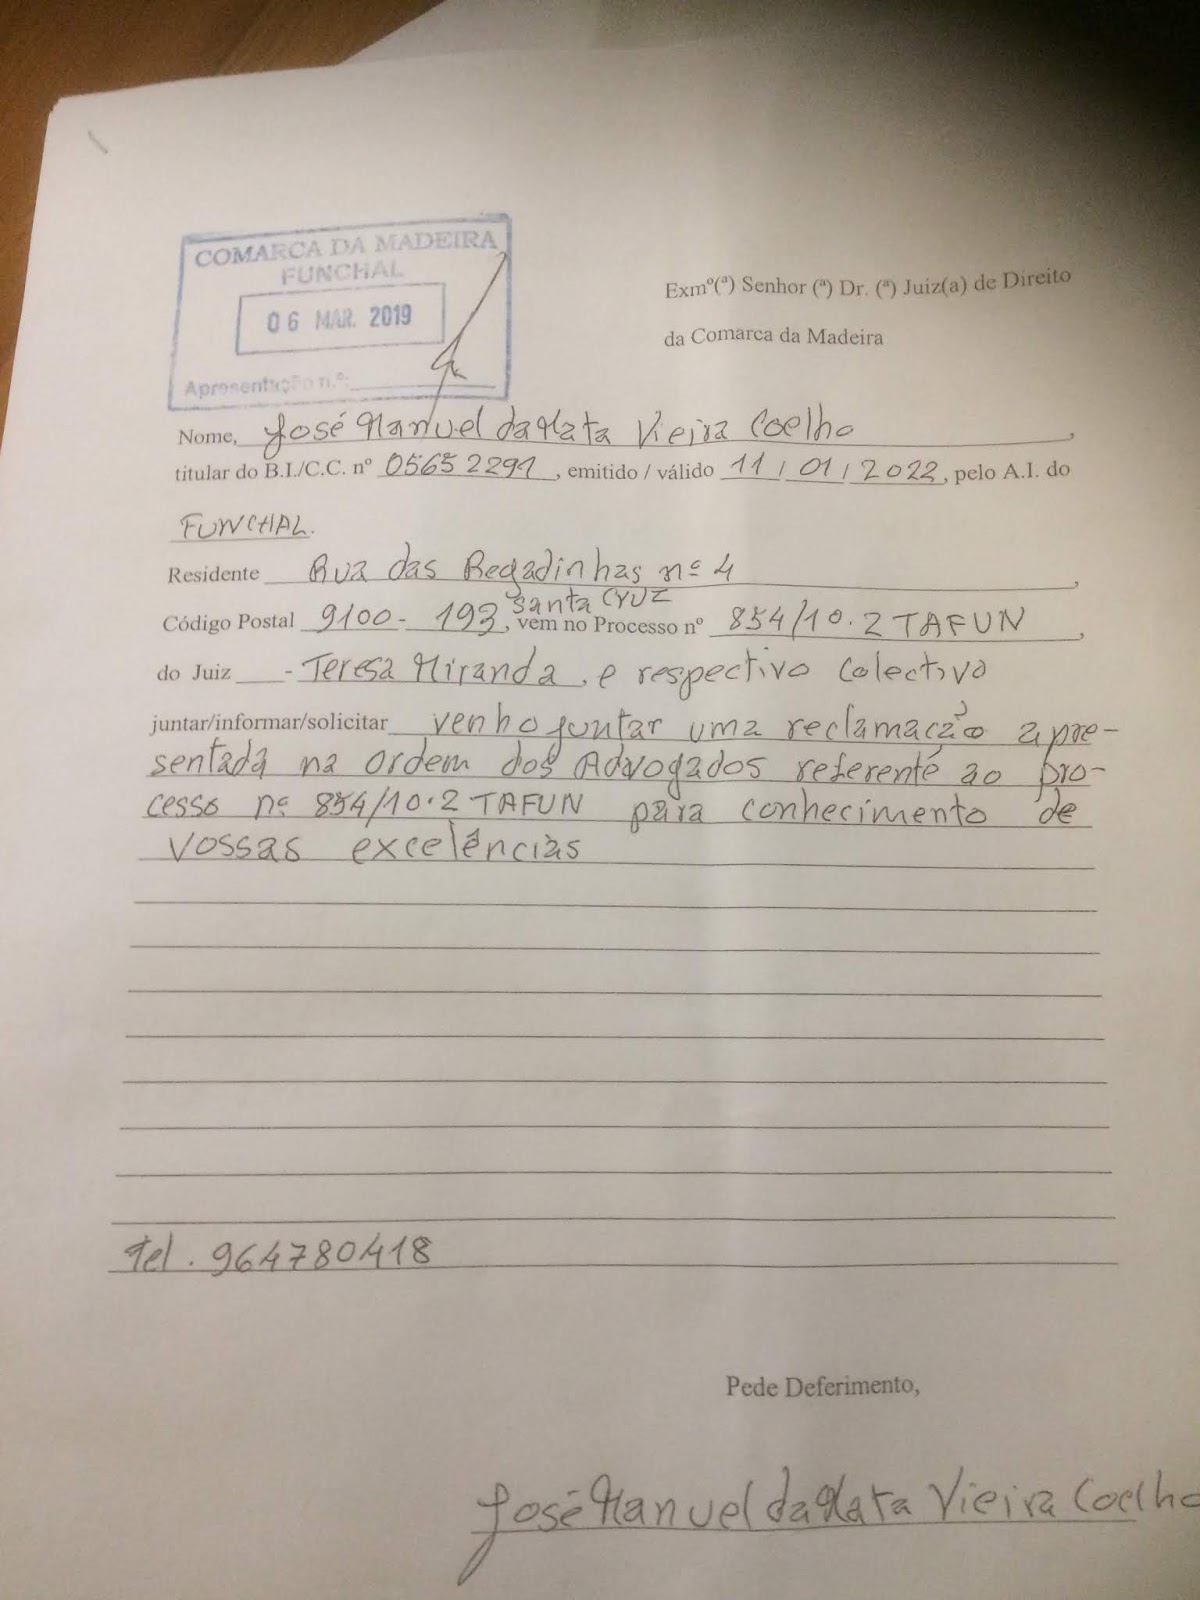 COMARCA DA MADEIRA
FUNCHAL
06 MAR. 2019
Apresentação n.º:
Exmº(ª) Senhor (ª) Dr. (ª) Juiz(a) de Direito
da Comarca da Madeira
Nome, José Manuel da Mata Vieira Coelho,
titular do B.I./C.C. nº 05652291, emitido / válido 11/01/2022, pelo A.I. do
FUNCHAL.
Residente Rua das Regadinhas nº 4,
Santa Cruz
Código Postal 9100-193, vem no Processo nº 854/10.2 TAFUN,
do Juiz - Teresa Miranda, e respectivo colectivo
juntar/informar/solicitar venho juntar uma reclamação apre-
sentada na ordem dos Advogados referente ao pro-
cesso nº 854/10.2 TAFUN para conhecimento de
vossas excelências
Tel. 964780418
Pede Deferimento,
José Manuel da Mata Vieira Coelho